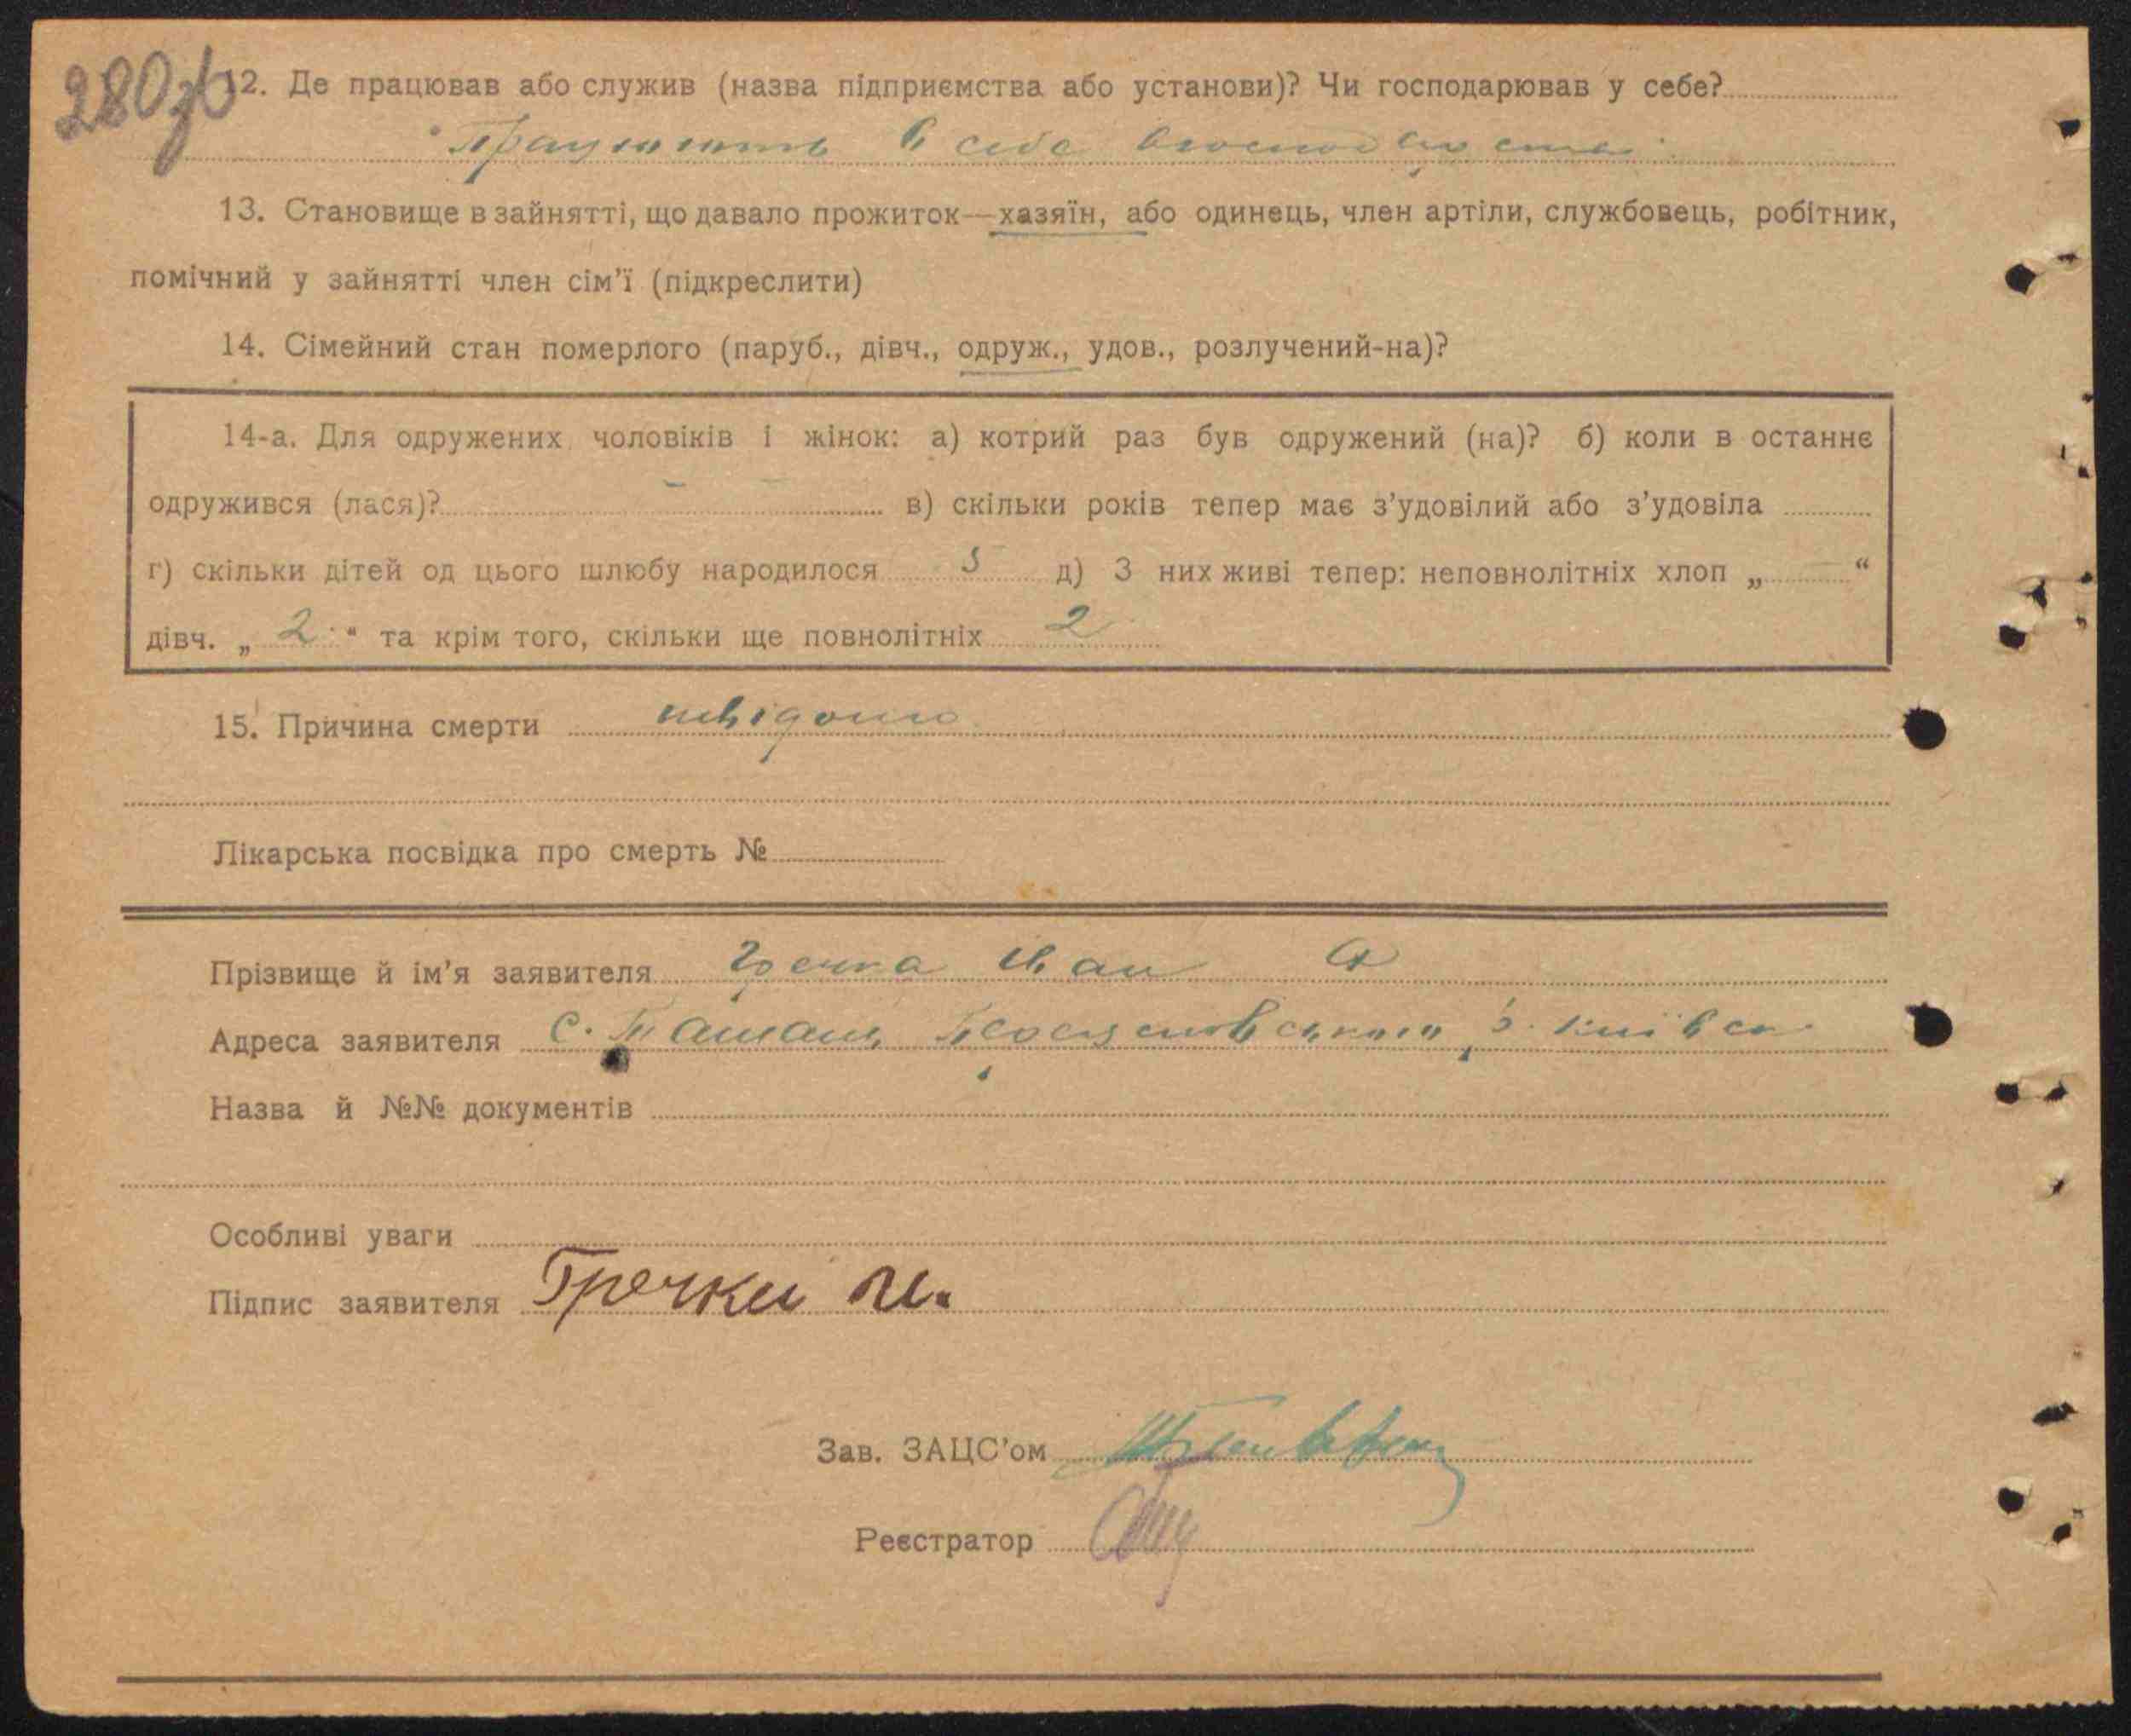 280зв
12. Де працював або служив (назва підприємства або установи)? Чи господарював у себе?
працюють в себе
13. Становище в зайнятті, що давало прожиток—хазяїн, або одинець, член артіли, службовець, робітник,
помічний у зайнятті член сім'ї (підкреслити)
14. Сімейний стан померлого (паруб., дівч., одруж., удов., розлучений-на)?
14-а. Для одружених чоловіків і жінок: а) котрий раз був одружений (на)? б) коли в останнє
одружився (лася)? — — в) скільки років тепер має з'удовілий або з'удовіла
г) скільки дітей од цього шлюбу народилося 5 д) З них живі тепер: неповнолітніх хлоп „ — “
дівч. „ 2 “ та крім того, скільки ще повнолітніх 2
15. Причина смерти невідомо
Лікарська посвідка про смерть №
Прізвище й ім'я заявителя Гречка Іван
Адреса заявителя с. Ташань
Назва й №№ документів
Особливі уваги
Підпис заявителя Гречки И.
Зав. ЗАЦС'ом
Реєстратор